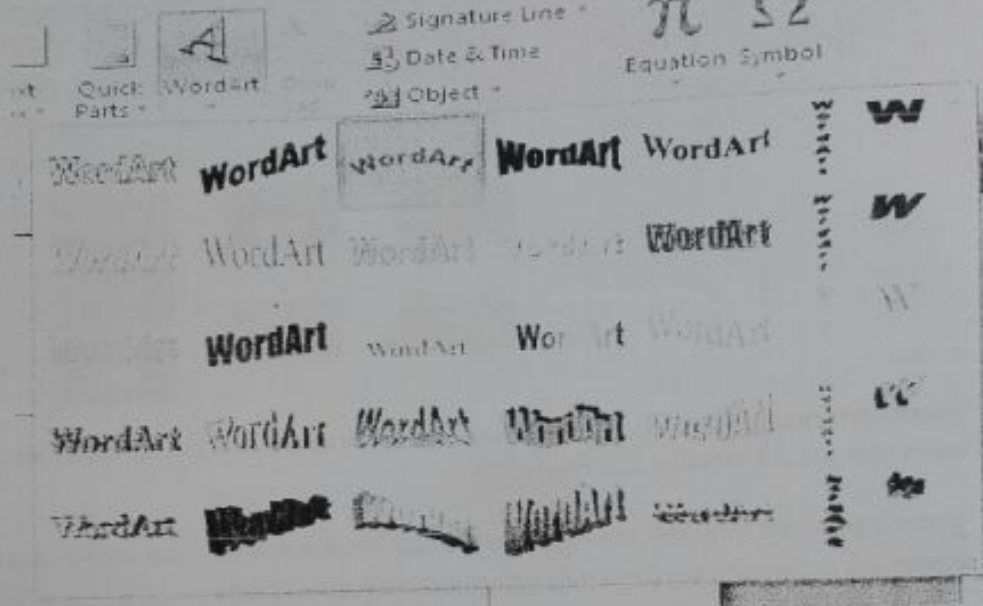 Signature Line
Date & Time
Object
Quick Parts
WordArt
Equation Symbol
WordArt WordArt WordArt WordArt WordArt WordArt W
WordArt WordArt WordArt WordArt WordArt W
WordArt WordArt WordArt WordArt W
WordArt WordArt WordArt WordArt WordArt
WordArt WordArt WordArt WordArt WordArt